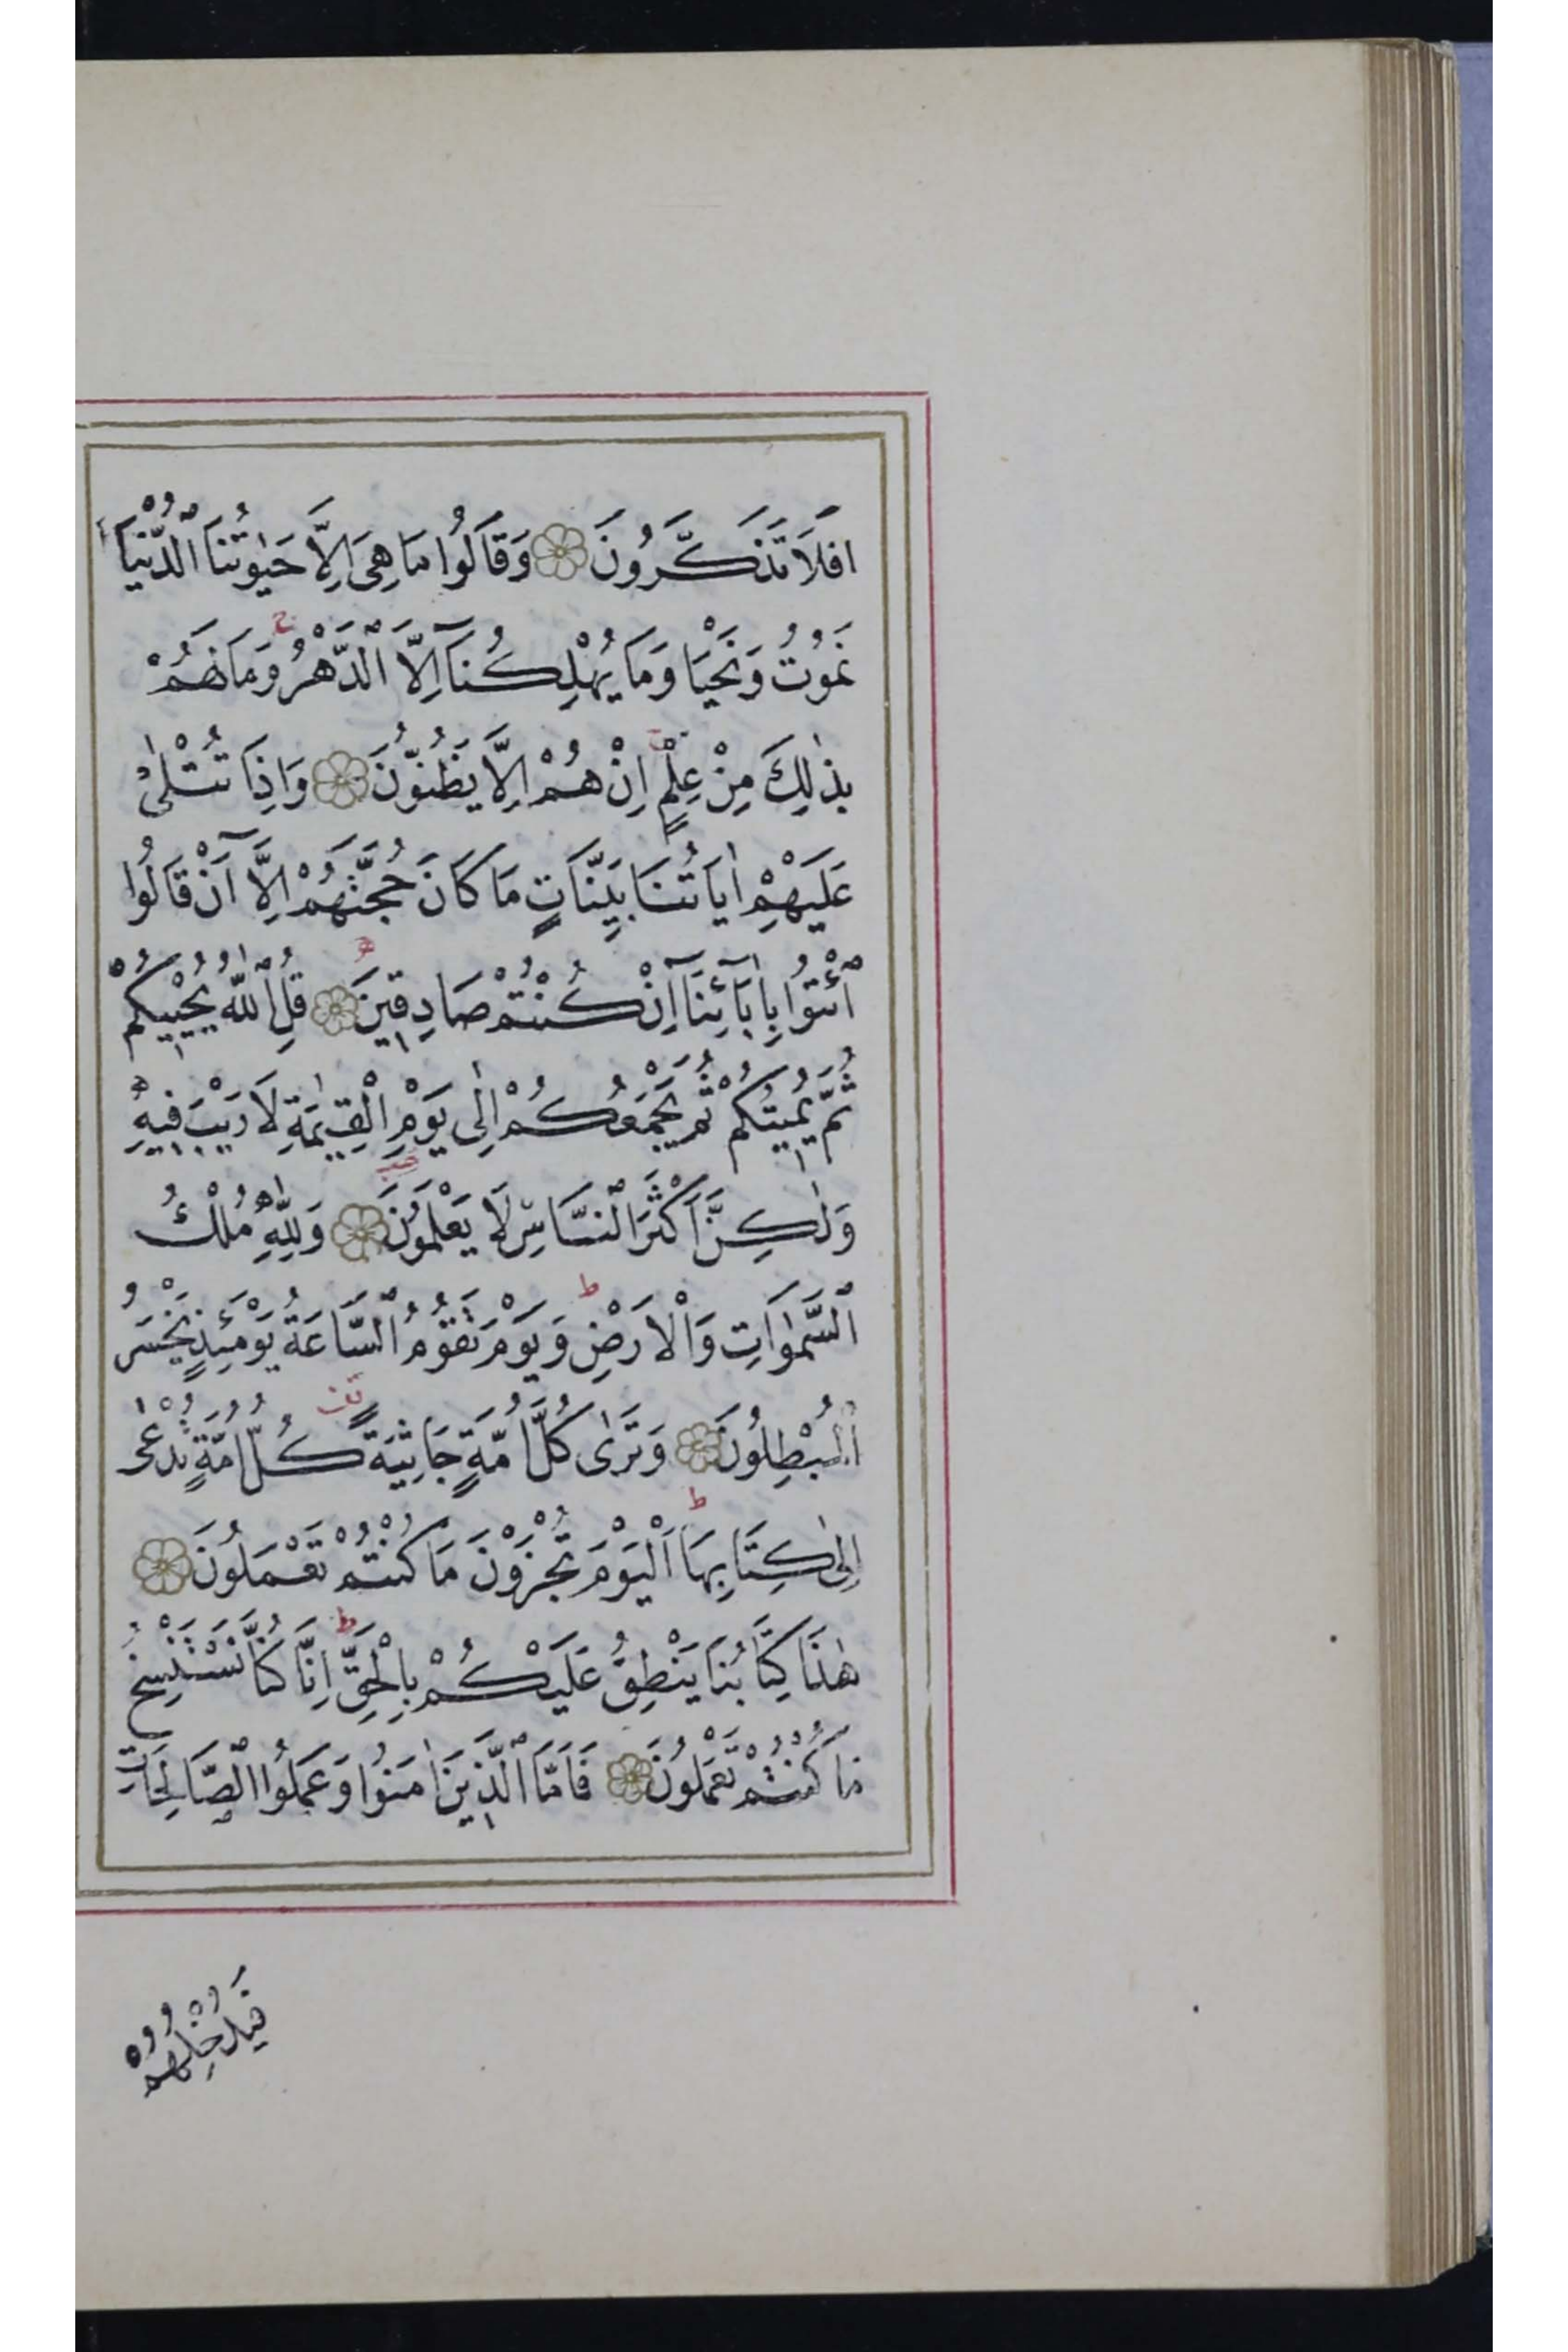 اَفَلَا تَذَكَّرُونَ وَقَالُوا مَا هِيَ اِلَّا حَيٰوتُنَا الدُّنْيَا
نَمُوْتُ وَنَحْيَا وَمَا يُهْلِكُنَآ اِلَّا الدَّهْرُ ج وَمَا لَهُمْ
بِذٰلِكَ مِنْ عِلْمٍ ج اِنْ هُمْ اِلَّا يَظُنُّوْنَ وَاِذَا تُتْلٰى
عَلَيْهِمْ اٰيَاتُنَا بَيِّنَاتٍ مَا كَانَ حُجَّتَهُمْ اِلَّآ اَنْ قَالُوا
ائْتُوْا بِاٰبَآئِنَآ اِنْ كُنْتُمْ صَادِقِيْنَ قُلِ اللّٰهُ يُحْيِيْكُمْ
ثُمَّ يُمِيْتُكُمْ ثُمَّ يَجْمَعُكُمْ اِلٰى يَوْمِ الْقِيٰمَةِ لَا رَيْبَ فِيْهِ
وَلٰكِنَّ اَكْثَرَ النَّاسِ لَا يَعْلَمُوْنَ وَلِلّٰهِ مُلْكُ
السَّمٰوَاتِ وَالْاَرْضِ ط وَيَوْمَ تَقُوْمُ السَّاعَةُ يَوْمَئِذٍ يَخْسَرُ
الْمُبْطِلُوْنَ وَتَرٰى كُلَّ اُمَّةٍ جَاثِيَةً كُلُّ اُمَّةٍ تُدْعٰى
اِلٰى كِتَابِهَا ط اَلْيَوْمَ تُجْزَوْنَ مَا كُنْتُمْ تَعْمَلُوْنَ
هٰذَا كِتَابُنَا يَنْطِقُ عَلَيْكُمْ بِالْحَقِّ ط اِنَّا كُنَّا نَسْتَنْسِخُ
مَا كُنْتُمْ تَعْمَلُوْنَ فَاَمَّا الَّذِيْنَ اٰمَنُوا وَعَمِلُوا الصَّالِحَاتِ
فَيُدْخِلُهُمْ